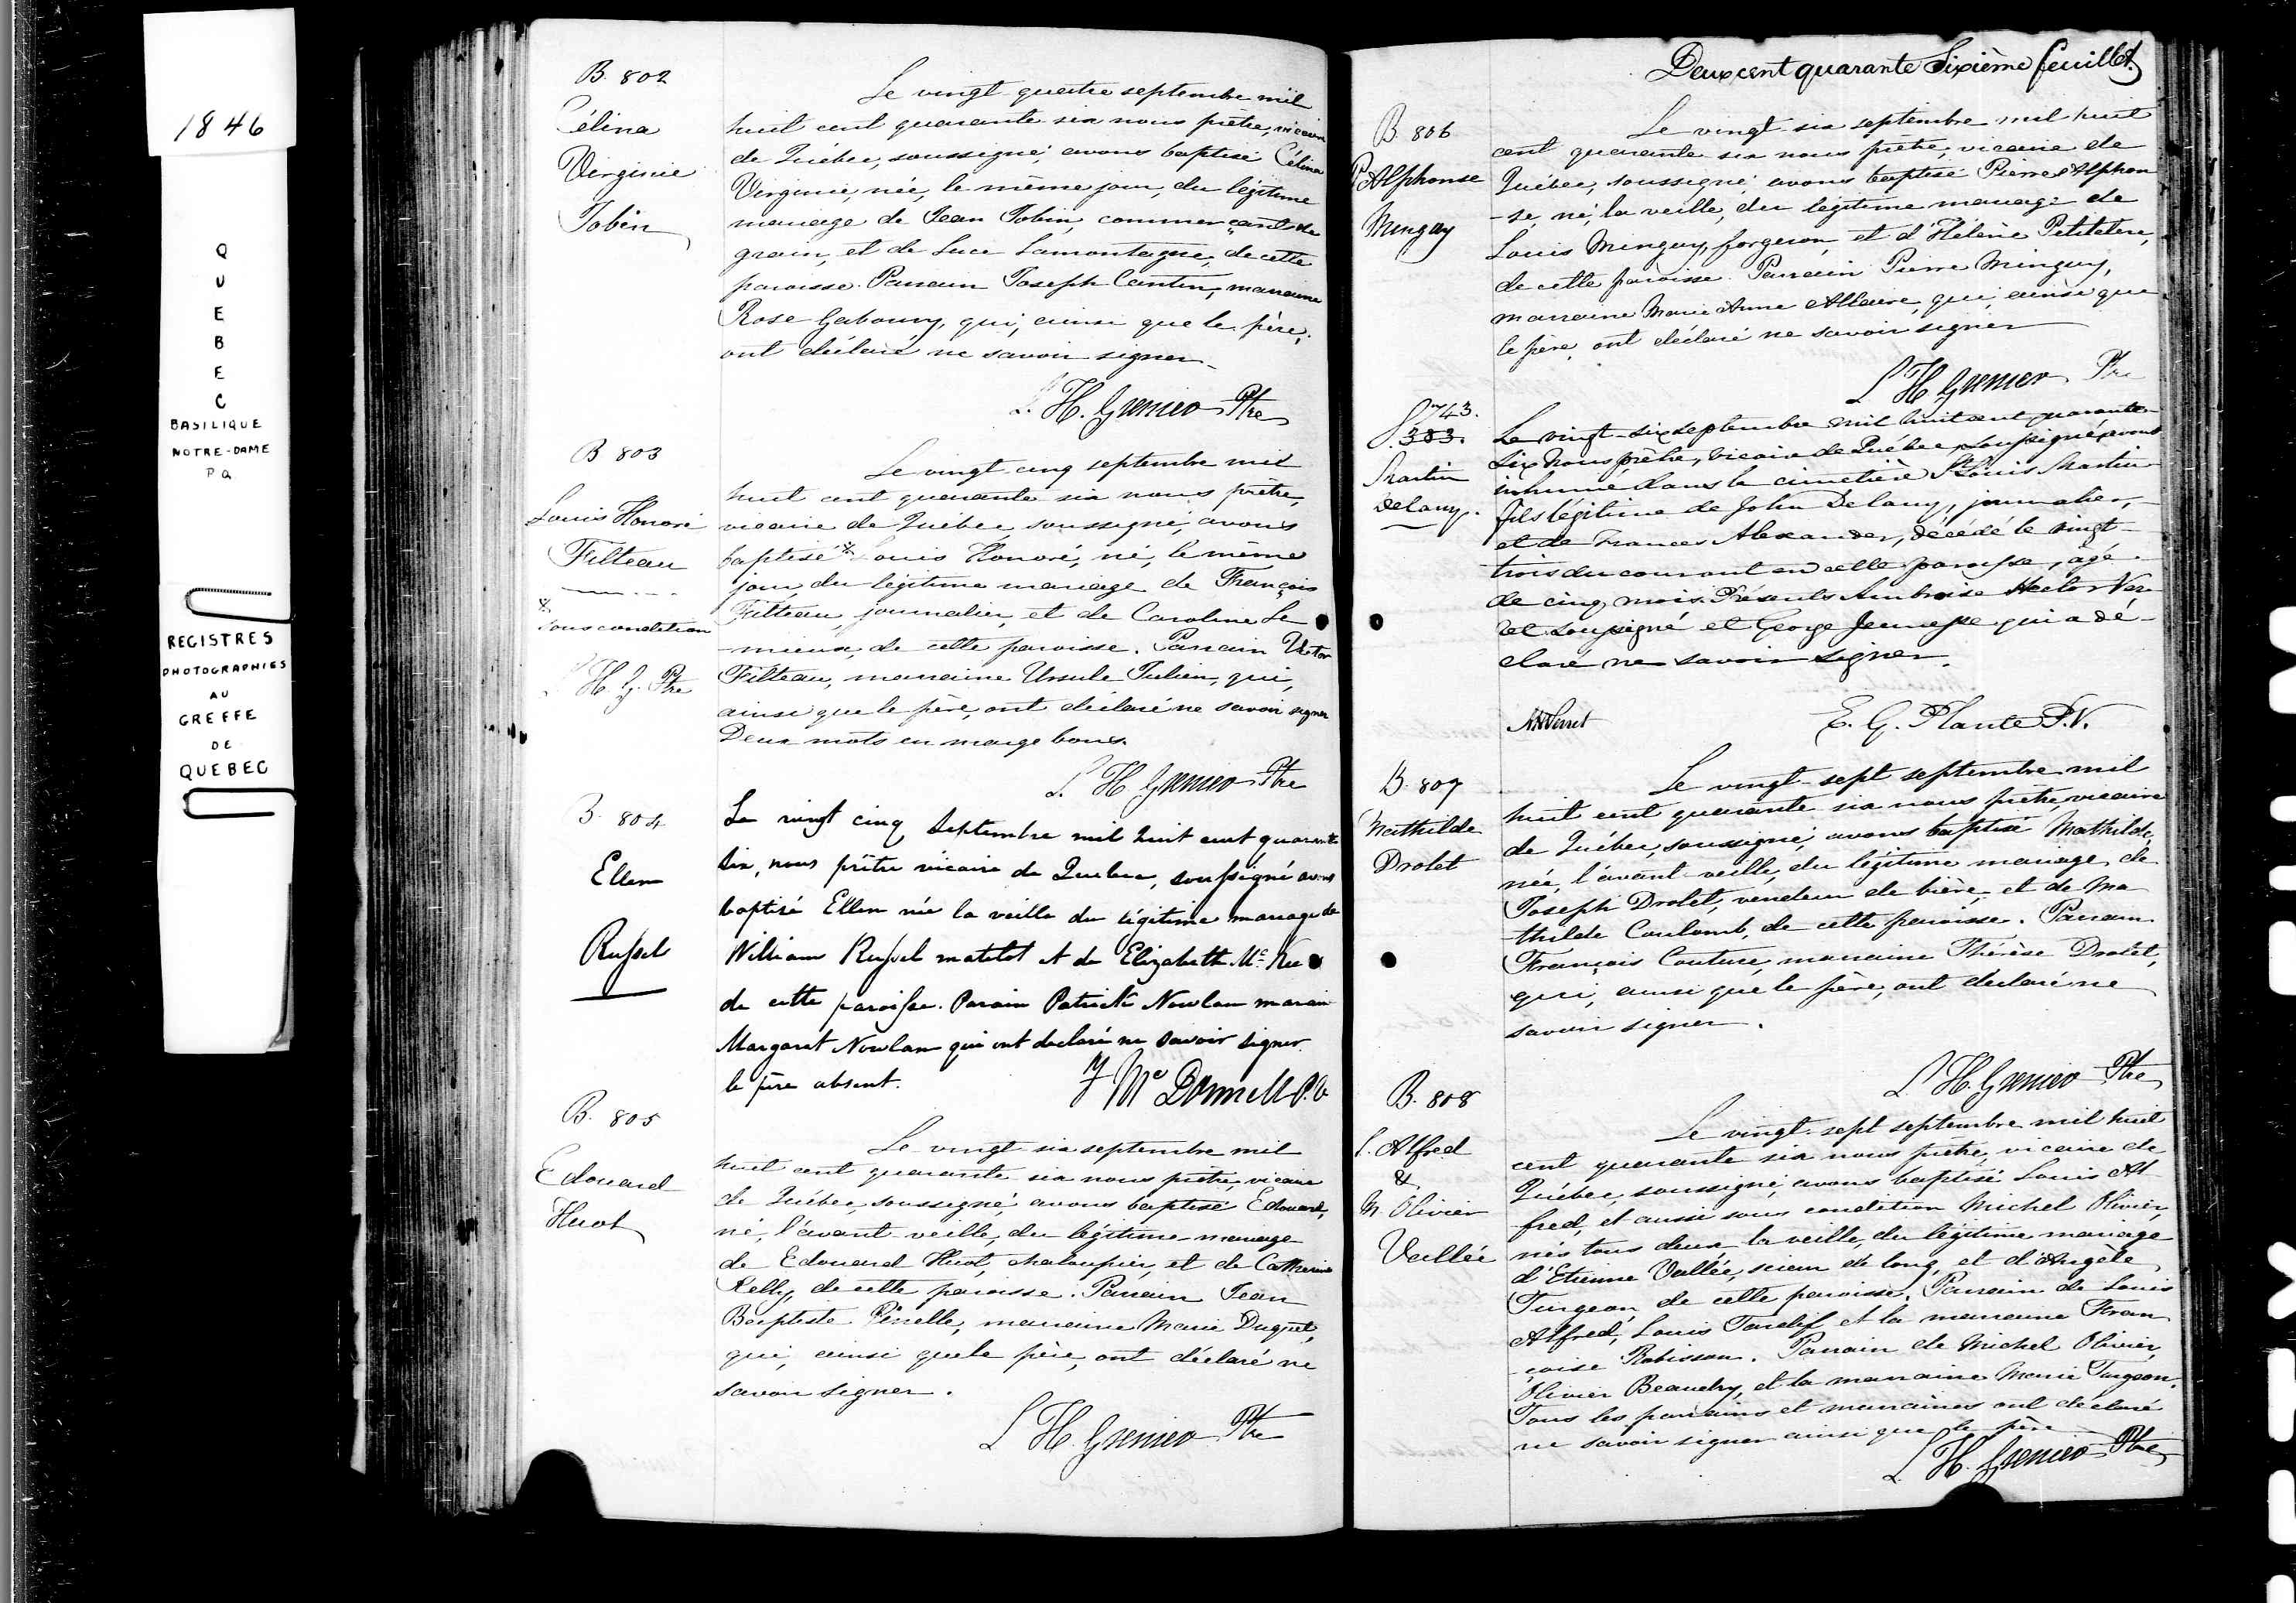 1846
QUEBEC
BASILIQUE
NOTRE-DAME
PQ
REGISTRES
PHOTOGRAPHIES
AU
GREFFE
DE
QUEBEC
B. 802
Célina
Virginie
Tobin
Le vingt quatre septembre mil
huit cent quarante six nous prêtre, vicaire
de Québec, soussigné, avons baptisé Célina
Virginie, née, le même jour, du légitime
mariage de Jean Tobin, commerçant de
grain, et de Luce Lamontagne, de cette
paroisse. Parrain Joseph Cantin, marraine
Rose Gaboury, qui, ainsi que le père,
ont déclaré ne savoir signer.
L. H. Grenier Ptre
B 803
Louis Honoré
Filteau
sous condition
L. H. G. Ptre
Le vingt cinq septembre mil
huit cent quarante six nous prêtre,
vicaire de Québec, soussigné, avons
baptisé Louis Honoré, né, le même
jour, du légitime mariage de François
Filteau, journalier, et de Caroline Le
-mieux, de cette paroisse. Parrain Victor
Filteau, marraine Ursule Julien, qui,
ainsi que le père, ont déclaré ne savoir signer
Deux mots en marge bons.
L. H Grenier Ptre
B. 804
Ellen
Russel
Le vingt cinq Septembre mil huit cent quarante
six, nous prêtre vicaire de Quebec, soussigné avons
baptisé Ellen née la veille du légitime mariage de
William Russel matelot et de Elizabeth Mc
de cette paroisse. Parain Patrick Nowlan marain
Margaret Nowlan qui ont declaré ne savoir signer.
le père absent.
Mc Donnell P.V.
B. 805
Edouard
Huot
Le vingt six septembre mil
huit cent quarante six nous prêtre, vicaire
de Québec, soussigné, avons baptisé Edouard,
né, l'avant veille, du légitime mariage
de Edouard Huot, chaloupier, et de Catherine
Kelly, de cette paroisse. Parrain Jean
Baptiste Pinelle, marraine Marie Duquet,
qui, ainsi que le père, ont déclaré ne
savoir signer.
L H. Grenier Ptre
Deux cent quarante Sixième feuillet.
B 806
P. Alphonse
Minguy
Le vingt six septembre mil huit
cent quarante six nous prêtre, vicaire de
Québec, soussigné, avons baptisé Pierre Alphon
-se, né, la veille, du légitime mariage de
Louis Minguy, forgeron, et d'Hélène Petitclerc,
de cette paroisse. Parrain Pierre Minguy,
marraine Marie Anne Allaire, qui, ainsi que
le père, ont déclaré ne savoir signer
L H. Grenier Ptre
S. 743.
383.
Martin
Delany.
Le vingt-six septembre mil huit cent quarante-
six Nous prêtre, Vicaire de Québec, soussigné, avons
inhumé dans le cimetière St Louis Martin
fils légitime de John Delany, journalier,
et de Frances Alexander, décédé le vingt-
trois du courant en cette paroisse, âgé
de cinq mois. Présents Ambroise Hector Ver-
ret soussigné et George Jeunesse qui a dé-
claré ne savoir signer.
AHVerret
E. G. Plante P.V.
B. 807
Mathilde
Drolet
Le vingt-sept septembre mil
huit cent quarante six nous prêtre vicaire
de Québec, soussigné, avons baptisé Mathilde,
née, l'avant-veille, du légitime mariage de
Joseph Drolet, vendeur de bière, et de Ma
-thilde Coulomb, de cette paroisse. Parrain
François Couture, marraine Thérèse Drolet,
qui, ainsi que le père, ont déclaré ne
savoir signer.
L H. Grenier Ptre
B. 808
L. Alfred
&
M. Olivier
Vallée
Le vingt-sept septembre mil huit
cent quarante six nous prêtre, vicaire de
Québec, soussigné, avons baptisé Louis Al
-fred, et aussi sous condition Michel Olivier,
nés tous deux la veille, du légitime mariage
d'Etienne Vallée, scieur de long, et d'Angèle
Turgeon de cette paroisse. Parrain de Louis
Alfred, Louis Tardif et la marraine Fran
-çoise Robisson. Parrain de Michel Olivier,
Olivier Beaudry, et la marraine Marie Turgeon.
Tous les parrains et marraines ont déclaré
ne savoir signer ainsi que le père
L H. Grenier Ptre